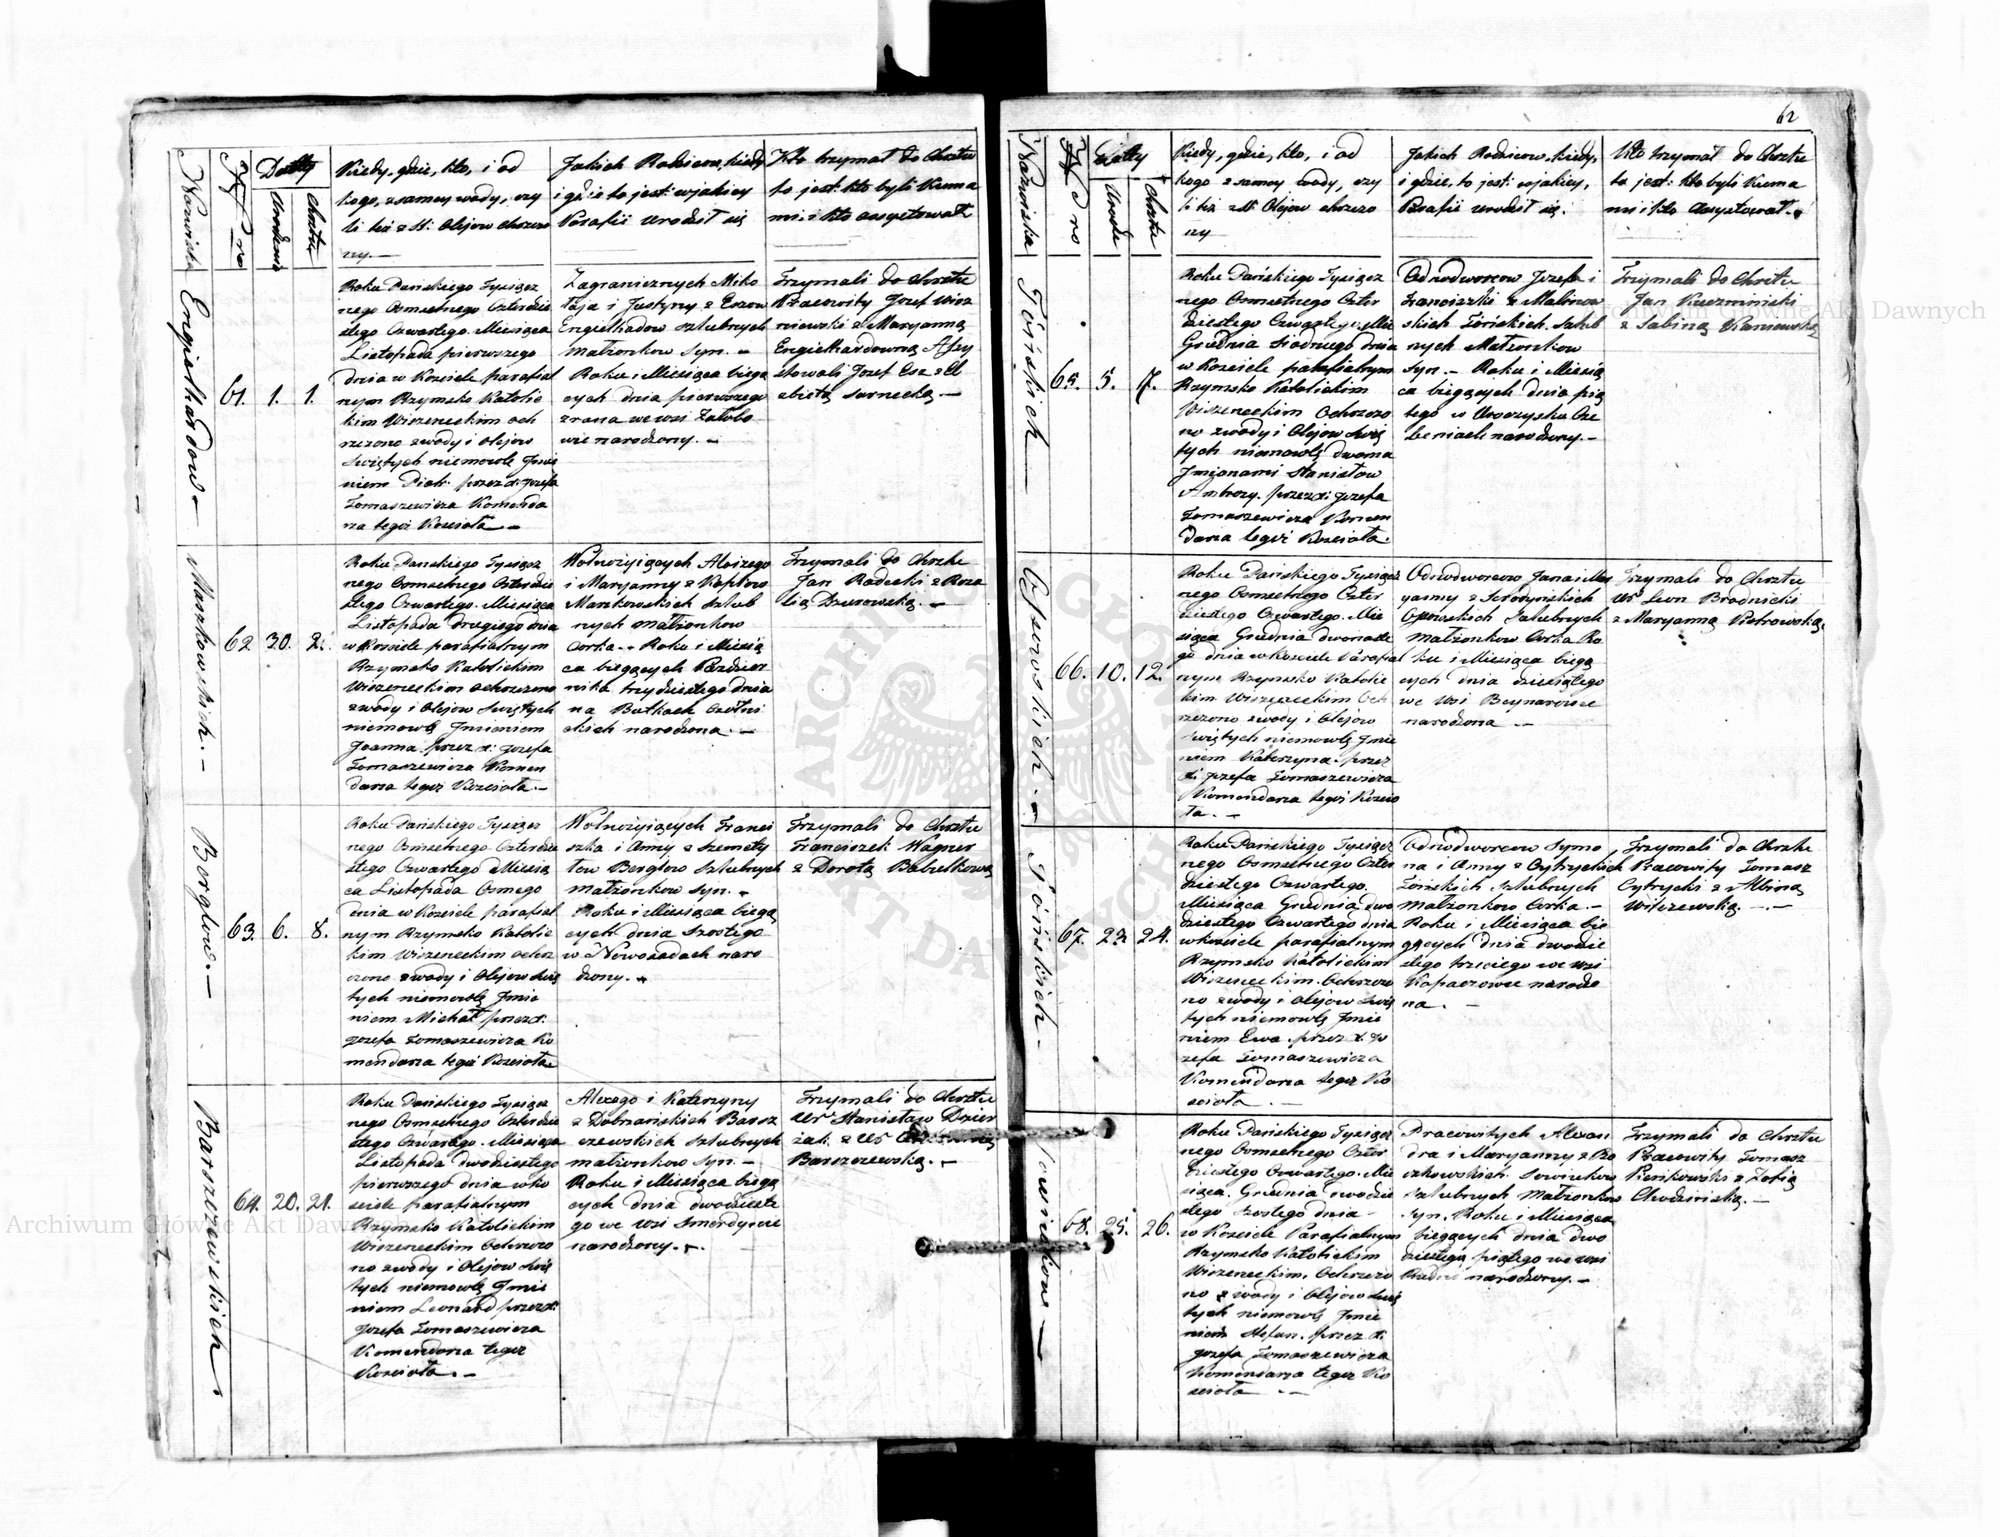 62
Nazwiska
Nro
Datty
Urodzenia
Chrztu
Kiedy, gdzie, kto, i od
kogo, z samey wody, czy
li też z SS: Olejow chrzczo
ny.—
Jakich Rodzicow, kiedy
i gdzie to jest: w jakiey
Parafii urodził się
Kto trzymał do Chrztu
to jest: kto byli Kuma
mi: i kto assystował
Engielhardow—
61.
1.
1.
Roku Pańskiego Tysiącz
nego Osmsetnego Czterdzie
stego Czwartego. Miesiąca
Listopada pierwszego
dnia w Kosciele parafial
nym Rzymsko Katolic
kim Wiszeneckim och
rzczono z wody i Olejow
Swiętych niemowle Jmie
niem Piotr. przez X: Jozefa
Tomaszewicza Komenda
rza tegoż Kościoła.—
Zagranicznych Miko
łaja i Justyny z
Engielhadow szlubnych
małżonkow syn. —
Roku i Miesiąca bieżą
cych dnia pierwszego
zrana we wsi
narodzony. —
Trzymali do Chrztu
Pracowity Jozef Wisz
niewski z Maryanną
Engielhardowną Assy
stowali Jozef z El
zbietą Sarnecką.—
Marszkowskich. —
62
30.
2.
Roku Pańskiego Tysiącz
nego Osmsetnego Czterdzie
stego Czwartego. Miesiąca
Listopada drugiego dnia
w Kosciele parafialnym
Rzymsko Katolickim
Wiszeneckim ochrzczono
z wody i Olejow Swiętych
niemowle Jmieniem
Joanna przez X: Jozefa
Tomaszewicza Komen
darza tegoż Kościoła.—
Wolnożyiących Aloizego
i Maryanny z
Marszkowskich szlub
nych małżonkow
Corka.— Roku i Miesią
ca bieżących Pazdzier
nika trzydziestego dnia
na Butkach
narodzona. —
Trzymali do Chrztu
Jan Radecki z Roza
lią Dzurowską. —
Berglow. —
63.
6.
8.
Roku Pańskiego Tysiącz
nego Osmsetnego Czterdzie
stego Czwartego Miesią
ca Listopada Osmego
dnia w Kosciele parafial
nym Rzymsko Katolic
kim Wiszeneckim ochrz
czono z wody i Olejow Swię
tych niemowle Jmie
niem Michał przez X:
Jozefa Tomaszewicza Ko
mendarza tegoż Kościoła
Wolnożyiących Franci
szka i Anny z Szemety
tow Berglow szlubnych
małżonkow syn. —
Roku i Miesiąca bieżą
cych dnia szostego
w Nowosadach naro
dzony. —
Trzymali do Chrztu
Franciszek Wagner
z Dorotą Babelkową
Barszczewskich.
64.
20.
21.
Roku Pańskiego Tysiącz
nego Osmsetnego Czterdzie
stego Czwartego. Miesiąca
Listopada dwudziestego
pierwszego dnia w Ko
sciele parafialnym
Rzymsko Katolickim
Wiszeneckim Ochrzczo
no z wody i Olejow Swię
tych niemowle Jmie
niem Leonard przez X:
Jozefa Tomaszewicza
Komendarza tegoż
Kościoła.—
Alexego i Katarzyny
z Dobrzańskich Barsz
czewskich szlubnych
małżonkow syn.—
Roku i Miesiąca bieżą
cych dnia dwudzieste
go we wsi Smerdyncie
narodzony. —
Trzymali do Chrztu
Ur Stanisław Dzier
żak z Ur
Barszczewską. —
Nazwiska
Nro
Datty
Urodz
Chrztu
Kiedy, gdzie, kto, i od
kogo z samey wody, czy
li też z SS: Olejow chrzczo
ny
Jakich Rodzicow, kiedy,
i gdzie, to jest: w jakiey,
Parafii urodził się.
Kto trzymał do Chrztu
to jest: kto byli Kuma
mi i kto Assystował.
Tóńskich —
65.
5.
7.
Roku Pańskiego Tysiącz
nego Osmsetnego Czter
dziestego Czwartego, Mie
Grudnia siodmego dnia
w Kosciele parafialnym
Rzymsko Katolickim
Wiszeneckim Ochrzczo
no z wody i Olejow Swię
tych niemowlę dwoma
Jmionami Stanisław
Ambrozy. przez X: Jozefa
Tomaszewicza Komen
darza tegoż Kościoła.
Odnodworcow Jozefa i
Franciszki z Malinow
skich Tóńskich. szlub
nych Małżonkow
syn.— Roku i Miesią
ca bieżących dnia pią
tego w Uroczysku Cze
beniach narodzony.—
Trzymali do Chrztu
Jan Kuczminski
z Sabiną Kaniewską
Ossowskich. —
66.
10.
12.
Roku Pańskiego Tysiącz
nego Osmsetnego Czter
dziestego Czwartego. Mie
siąca Grudnia dwonaste
go dnia w Kosciele Parafial
nym Rzymsko Katolic
kim Wiszeneckim Och
rzczono z wody i Olejow
Swiętych niemowlę Jmie
niem Katarzyna. przez
X: Jozefa Tomaszewicza
Komendarza tegoż Koscio
ła. —
Odnodworcow Jana i Mar
yanny z
Ossowskich szlubnych
małżonkow Corka Ro
ku i Miesiąca bieżą
cych dnia dziesiątego
we Wsi Beynarowce
narodzona —
Trzymali do Chrztu
Ur Leon Brodnicki
z Maryanną Piotrowską.
Tóńskich —
67.
23.
24.
Roku Pańskiego Tysiącz
nego Osmsetnego Czter
dziestego Czwartego.
Miesiąca Grudnia dwu
dziestego Czwartego dnia
w kosciele parafialnym
Rzymsko Katolickim
Wiszeneckim. Ochrzczo
no z wody i Olejow Swię
tych niemowlę Jmie
niem Ewa. przez X: Jo
zefa Tomaszewicza
Komendarza tegoż Ko
scioła. —
Odnodworcow Symo
na i Anny z Cytryckich
Tóńskich szlubnych
małżonkow Corka.—
Roku i Miesiąca bie
żących dnia dwudzie
stego trzeciego we wsi
Kopaczowce narodzo
na. —
Trzymali do Chrztu
Pracowity Tomasz
Cytrycki z Albiną
Wiszewską. —
Sowinskow —
68.
25.
26.
Roku Pańskiego Tysiącz
nego Osmsetnego Czter
dziestego Czwartego. Mie
siąca. Grudnia dwudzie
stego szostego dnia
w Kosciele Parafialnym
Rzymsko Katolickim
Wiszeneckim. Ochrzczo
no z wody i Olejow Swię
tych niemowlę Jmie
niem Stefan. przez X:
Jozefa Tomaszewicza
Komendarza tegoż Ko
scioła —
Pracowitych Alexan
dra i Maryanny z
szlubnych Małżonkow
syn. Roku i Miesiąca
bieżących dnia dwu
dziestego piątego we wsi
narodzony.—
Trzymali do Chrztu
Pracowity Tomasz
Pienkowski z Zofią
Chodzińską. —
Archiwum Główne Akt Dawnych
Archiwum Główne Akt Dawnych
ARCHIWUM GŁÓWNE AKT DAWNYCH